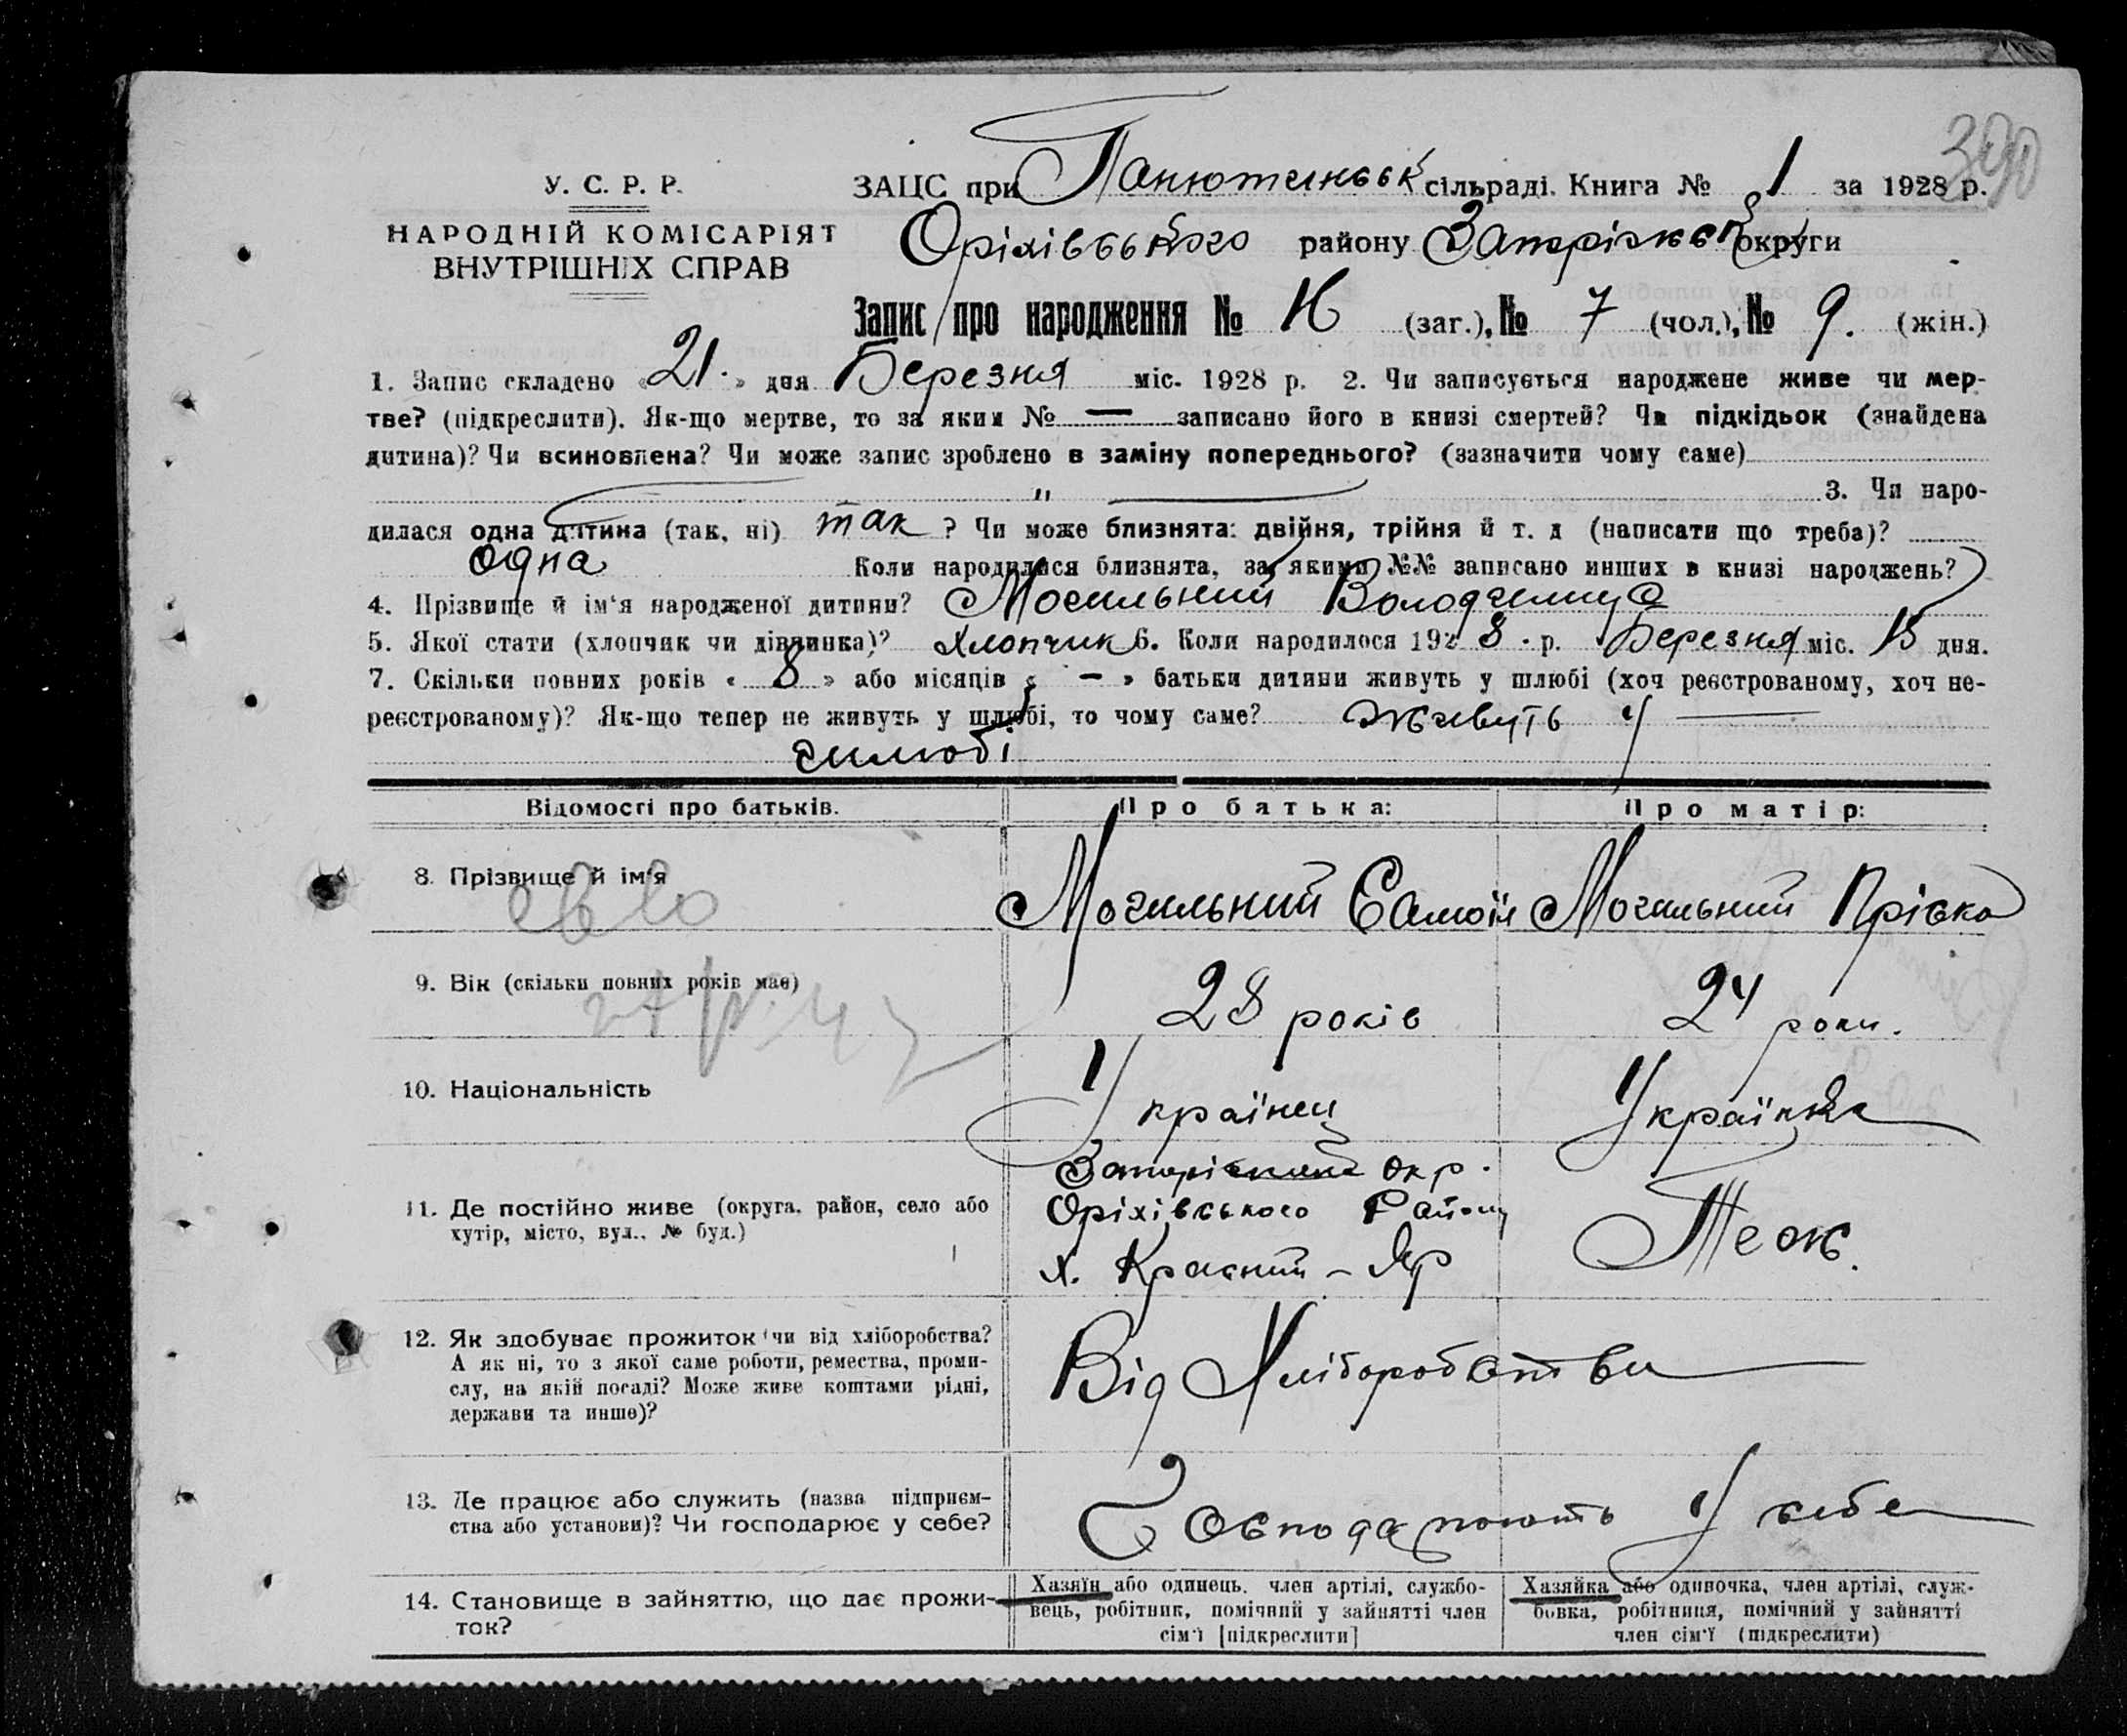 390
У. С. Р. Р.
НАРОДНІЙ КОМІСАРІЯТ
ВНУТРІШНІХ СПРАВ
ЗАЦС при Панютинськ сільраді. Книга № 1 за 1928 р.
Оріхівського району Запоріжськ округи
Запис про народження № 16 (заг.), № 7 (чол.), № 9. (жін.)
1. Запис складено «21.» дня Березня міс. 1928 р. 2. Чи записується народжене живе чи мер-
тве? (підкреслити). Як-що мертве, то за яким № — записано його в книзі смертей? Чи підкідьок (знайдена
дитина)? Чи всиновлена? Чи може запис зроблено в заміну попереднього? (зазначити чому саме)
— " — 3. Чи наро-
дилася одна дитина (так, ні) так ? Чи може близнята: двійня, трійня й т. д (написати що треба)?
одна Коли народилися близнята, за якими №№ записано инших в книзі народжень?
4. Прізвище й ім'я народженої дитини? Могильний
5. Якої стати (хлопчик чи дівчинка)? Хлопчик 6. Коли народилося 1928. р. Березня міс. дня.
7. Скільки повних років «8» або місяців « — » батьки дитини живуть у шлюбі (хоч реєстрованому, хоч не-
реєстрованому)? Як-що тепер не живуть у шлюбі, то чому саме? живуть у —
шлюбі
Відомості про батьків.
Про батька:
Про матір:
8. Прізвище й ім'я
Могильний Самоїл
Могильний Пріська
9. Вік (скільки повних років має)
28 років
24 роки.
10. Національність
Українец
Українка
11. Де постійно живе (округа, район, село або
хутір, місто, вул., № буд.)
Запоріжської окр.
Оріхівського Району
х. Красний – Яр
Теж.
12. Як здобуває прожиток чи від хліборобства?
А як ні, то з якої саме роботи, ремества, проми-
слу, на якій посаді? Може живе коштами рідні,
держави та инше)?
Від Хліборобства
13. Де працює або служить (назва підприєм-
ства або установи)? Чи господарює у себе?
Господарюють у себе
14. Становище в зайняттю, що дає прожи-
ток?
Хазяїн або одинець, член артілі, службо-
вець, робітник, помічний у зайнятті член
сім'ї [підкреслити]
Хазяйка або одиночка, член артілі, служ-
бовка, робітниця, помічний у зайнятті
член сім'ї (підкреслити)